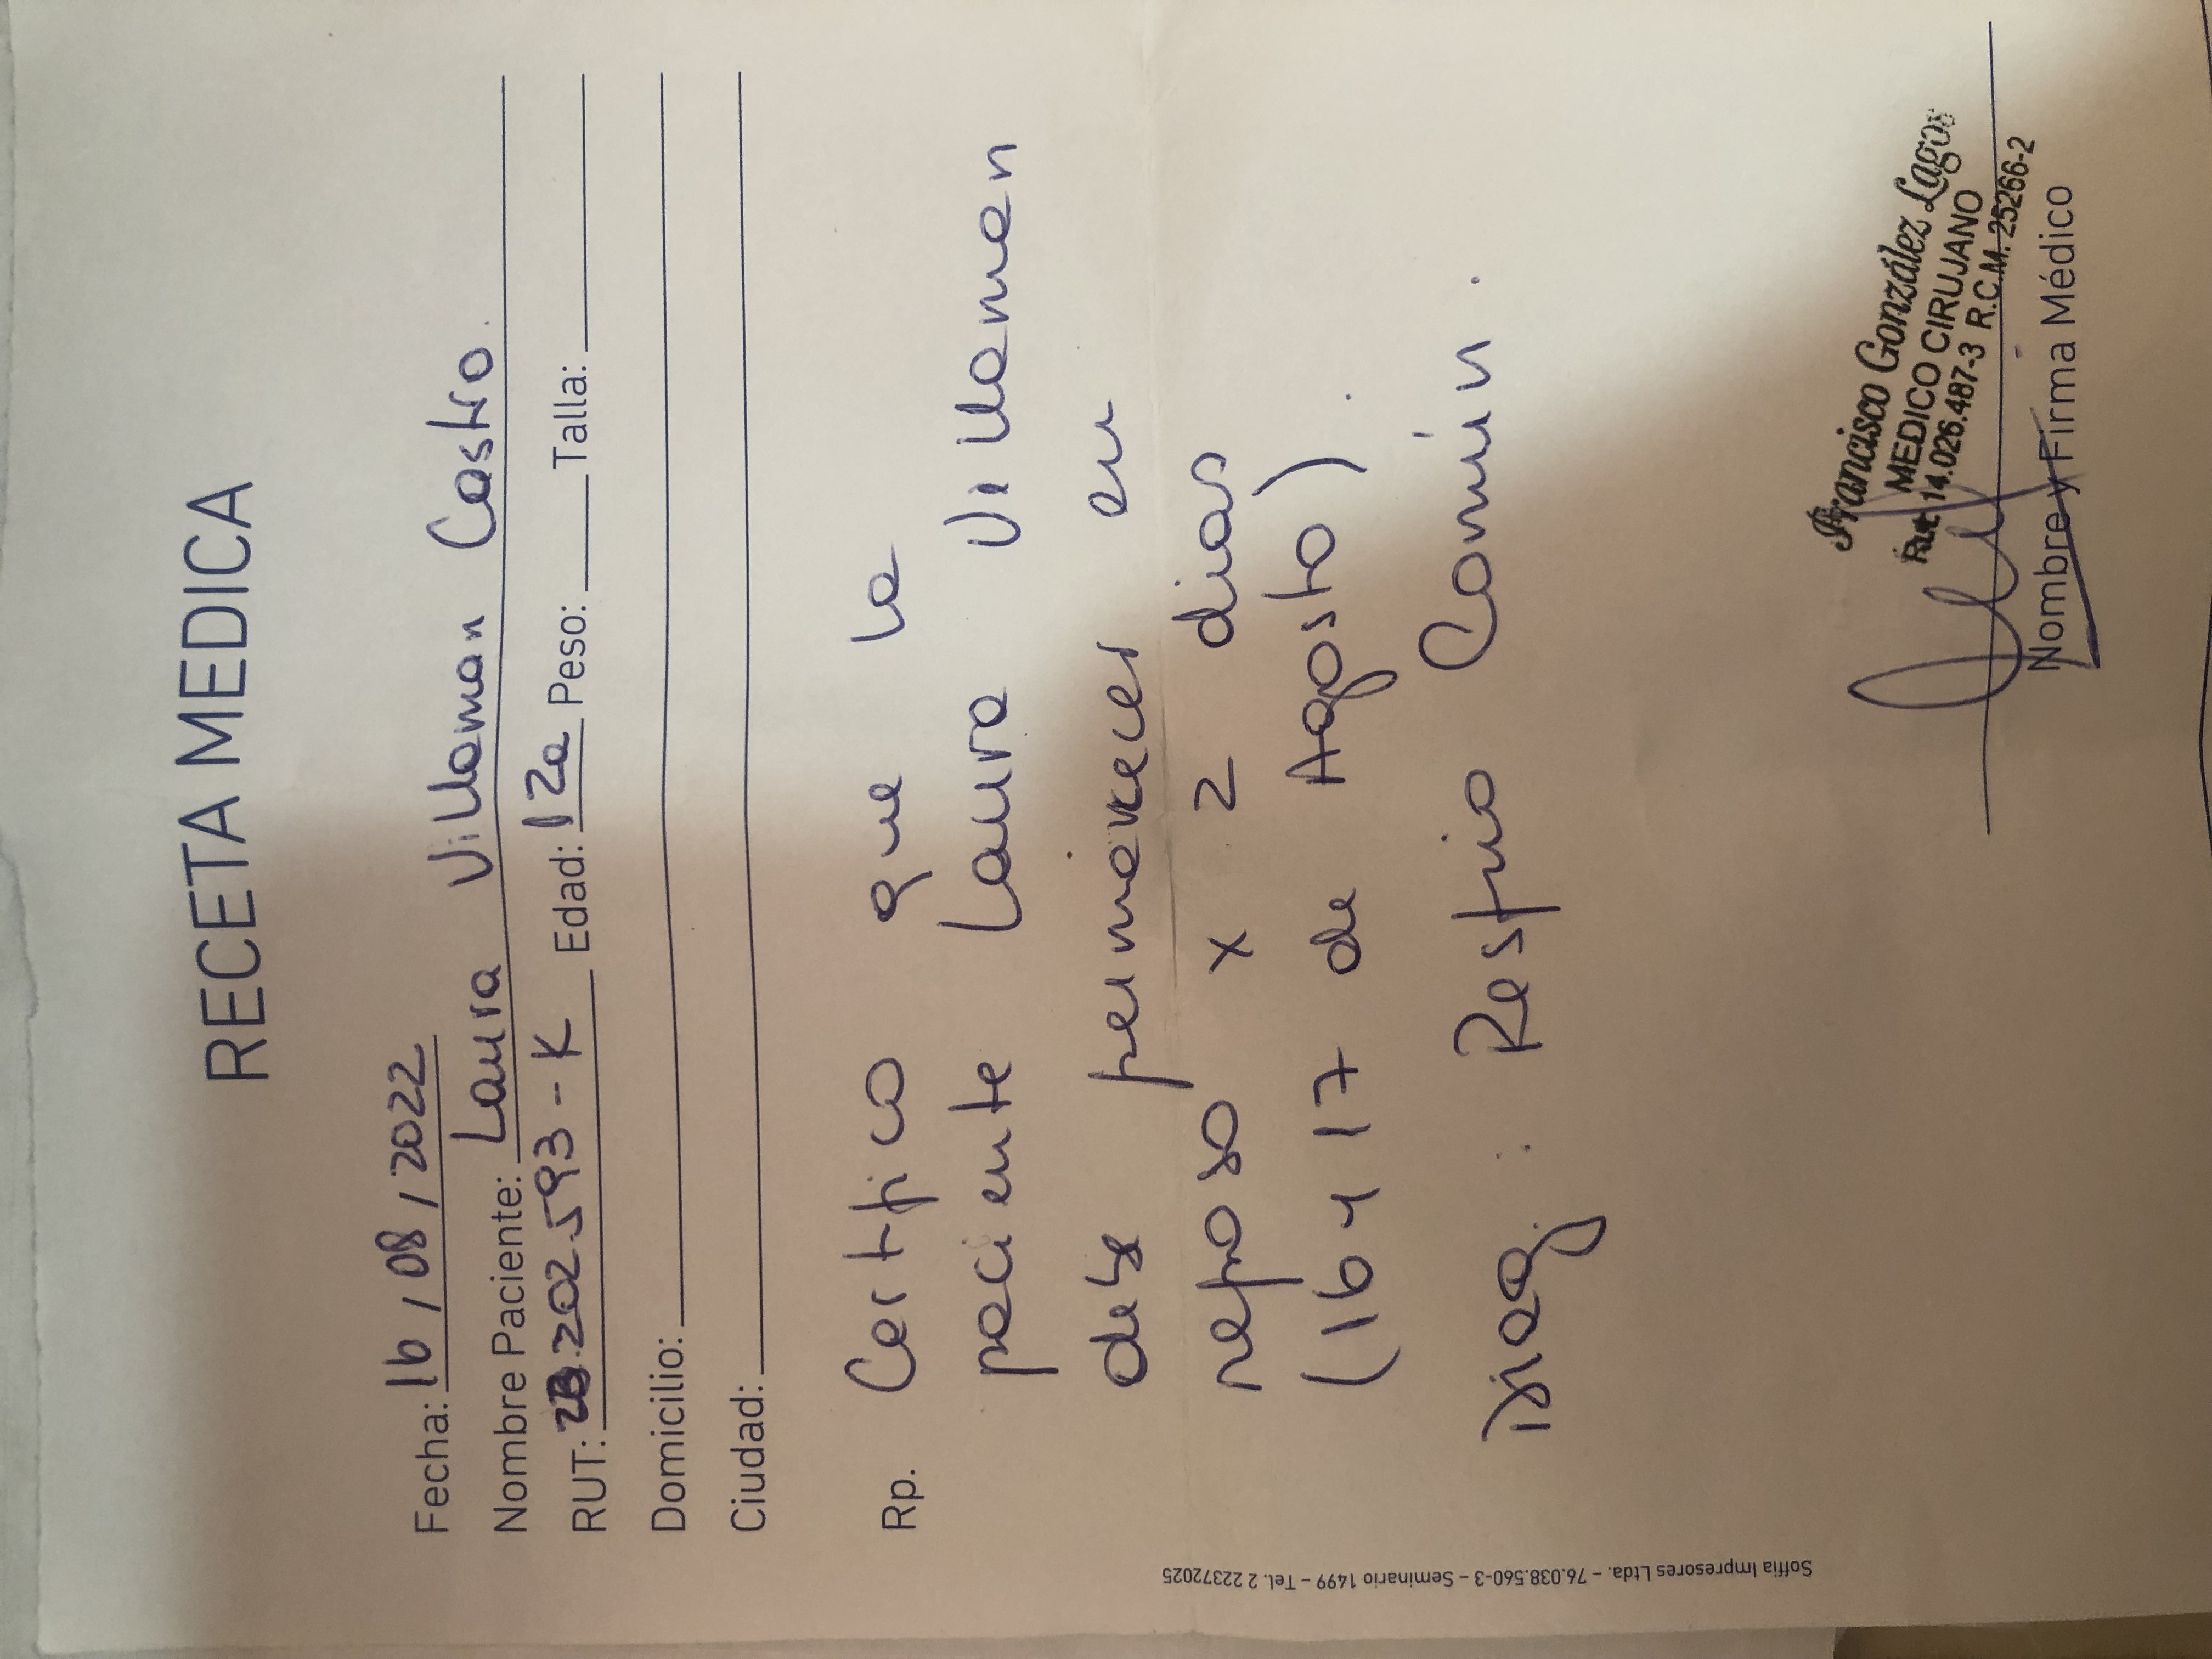 RECETA MEDICA
Fecha: 16 / 08 / 2022
Nombre Paciente: Laura Villaman Castro.
RUT: 23.202.593--K Edad: 12a Peso: Talla:
Domicilio:
Ciudad:
Rp. Certifico que la
paciente Laura Villaman
debe permanecer en
reposo x 2 dias
(16 y 17 de Agosto).
Diag: Resfrio Común.
Francisco González Lagos
MEDICO CIRUJANO
Rut 14.026.487-3 R.C.M. 25266-2
Nombre y Firma Médico
Soffia Impresores Ltda. – 76.038.560-3 – Seminario 1499 – Tel. 2 22372025